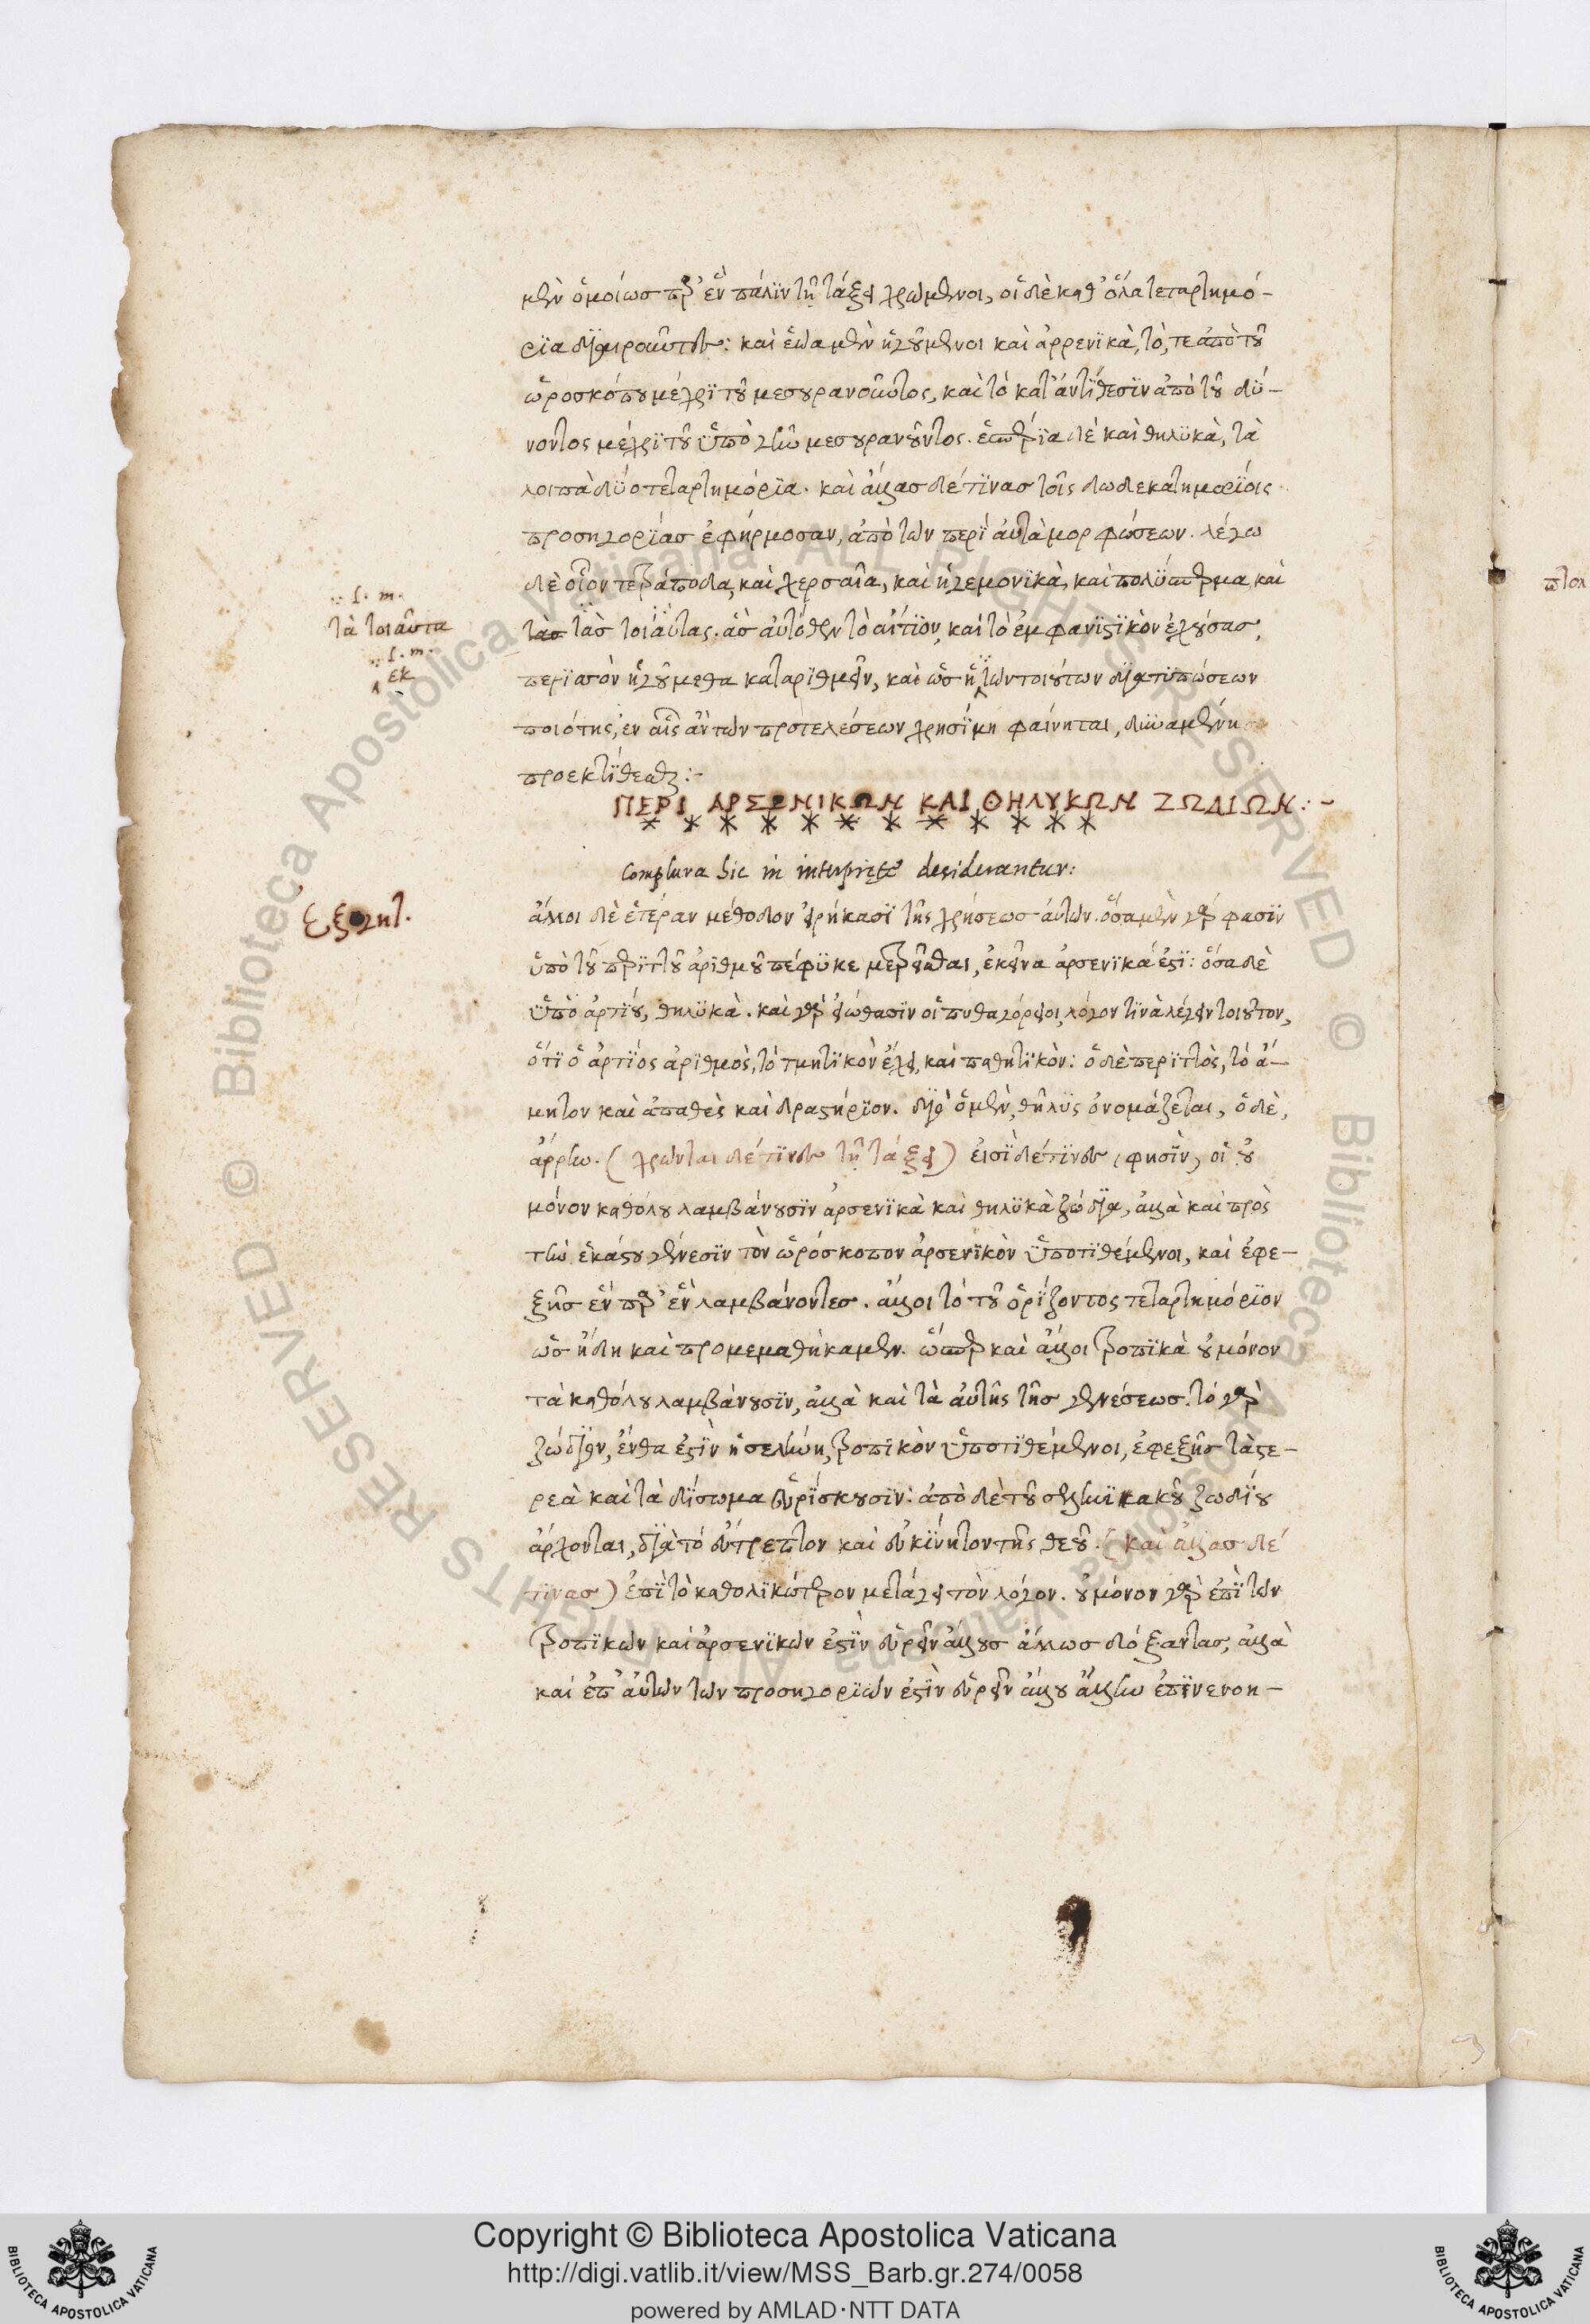 μὲν ὁμοίωσ παρ' ἓν πάλϊν τῇ τάξει χρώμενοι, οἱ δὲ καθ' ὅλα τεταρτημό-
ρϊα διαιροῦντες: καὶ ἑῶα μὲν ἡγούμενοι καὶ ἀρρενϊκὰ, τό, τε ἀπὸ τοῦ
ὡροσκόπου μέχρϊ τοῦ μεσουρανοῦντος, καὶ τὸ κατ' ἀντίθεσϊν ἀπὸ τοῦ δύ-
νοντος μέχρϊ τοῦ ὑπὸ γῆν μεσουρανοῦντος. ἑσπέρϊα δὲ καὶ θηλϋκὰ, τὰ
λοιπὰ δύο τεταρτημόρϊα. καὶ ἄλλασ δέ τϊνασ τοῖς δωδεκατημορϊοις
προσηγορϊασ ἐφήρμοσαν, ἀπὸ τῶν περὶ ἀυτὰ μορφώσεων. λέγω
δὲ οἷον τετράποδα, καὶ χερσαῖα, καὶ ἡγεμονϊκὰ, καὶ πολύσπερμα, καὶ
.. f. m.
τὰ τοιαῦτα
τὰσ τὰσ τοιάυτας. ἃσ ἀυτόθεν τὸ αἴτϊον, καὶ τὸ ἐμφανϊστϊκὸν ἐχούσασ,
.. f. m.
ἐκ
περϊσσὸν ἡγούμεθα καταρϊθμεῖν, καὶ ὡσ ἡ τῶν τοιούτων διατϋπώσεων
ποιότης, ἐν αἷς ἂν τῶν προτελέσεων χρησίμη φαίνηται, δυναμένη
προεκτίθεσθαι:-
ΠΕΡΙ ΑΡΣΕΝΙΚΩΝ ΚΑΙ ΘΗΛΥΚΩΝ ΖΩΔΙΩΝ:-
* * * * * * * * * * * *
Complura hic in interprete desiderantur:
Ἐξηγητ.
ἄλλοι δὲ ἑτέραν μέθοδον εἰρήκασϊ τῆς χρήσεωσ ἀυτῶν. ὅσα μὲν γάρ φασϊν
ὑπὸ τοῦ περϊττοῦ ἀρϊθμοῦ πέφϋκε μετρεῖσθαι, ἐκεῖνα ἀρσενϊκά ἐστϊ: ὅσα δὲ
ὑπὸ ἀρτίου, θηλϋκὰ. καὶ γὰρ εἰώθασϊν οἱ πυθαγόρειοι, λόγον τϊνὰ λέγειν τοιοῦτον,
ὅτϊ ὁ ἄρτϊος ἀρϊθμὸς, τὸ τμητϊκὸν ἔχει, καὶ παθητϊκὸν: ὁ δὲ περϊττὸς, τὸ ἄ-
μητον καὶ ἀπαθὲς καὶ δραστήρϊον. διὸ ὁ μὲν, θῆλϋς ὀνομάζεται, ὁ δὲ,
ἄρρην. (χρῶνται δέ τϊνες τῇ τάξει) ἐισϊ δέ τϊνες, φησϊν, οἱ οὐ
μόνον καθόλου λαμβάνουσϊν ἀρσενϊκὰ καὶ θηλϋκὰ ζώδια, ἀλλὰ καὶ πρὸς
τὴν ἑκάστου γένεσϊν τὸν ὡρόσκοπον ἀρσενϊκὸν ὑποτϊθέμενοι, καὶ ἐφε-
ξῆσ ἓν παρ' ἓν λαμβάνοντεσ. ἄλλοι τὸ τοῦ ὁρίζοντος τεταρτημόρϊον
ὡσ ἤδη καὶ προμεμαθήκαμεν. ὥσπερ καὶ ἄλλοι τροπϊκὰ οὐ μόνον
τὰ καθόλου λαμβάνουσϊν, ἀλλὰ καὶ τὰ ἀυτῆς τῆσ γενέσεωσ. τὸ γὰρ
ζώδιον, ἔνθα ἐστϊν ἡ σελήνη, τροπϊκὸν ὑποτϊθέμενοι, ἐφεξῆσ τὰ στε-
ρεὰ καὶ τὰ δίσωμα εὑρίσκουσϊν: ἀπὸ δὲ τοῦ σεληνϊακοῦ ζωδϊου
ἄρχονται, διὰ τὸ εὔτρεπτον καὶ εὐκϊνητον τῆς θεοῦ. (καὶ ἄλλασ δέ
τϊνασ) ἐπὶ τὸ καθολϊκώτερον μετάγει τὸν λόγον. οὐ μόνον γὰρ ἐπὶ τῶν
τροπϊκῶν καὶ ἀρσενϊκῶν ἐστϊν εὑρεῖν ἄλλουσ ἄλλωσ δόξαντασ, ἀλλὰ
καὶ ἐπ' ἀυτῶν τῶν προσηγορϊῶν ἐστϊν εὑρεῖν ἄλλου ἄλλην ἐπϊνενοη-
πτολ
Copyright © Biblioteca Apostolica Vaticana
http://digi.vatlib.it/view/MSS_Barb.gr.274/0058
powered by AMLAD·NTT DATA
BIBLIOTECA APOSTOLICA VATICANA
BIBLIOTECA APOSTOLICA VATICANA